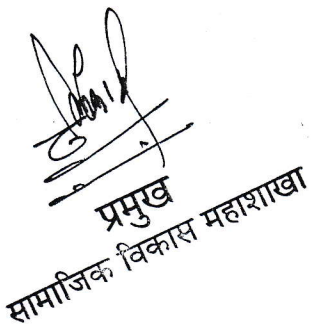 प्रमुख
सामाजिक विकास महाशाखा